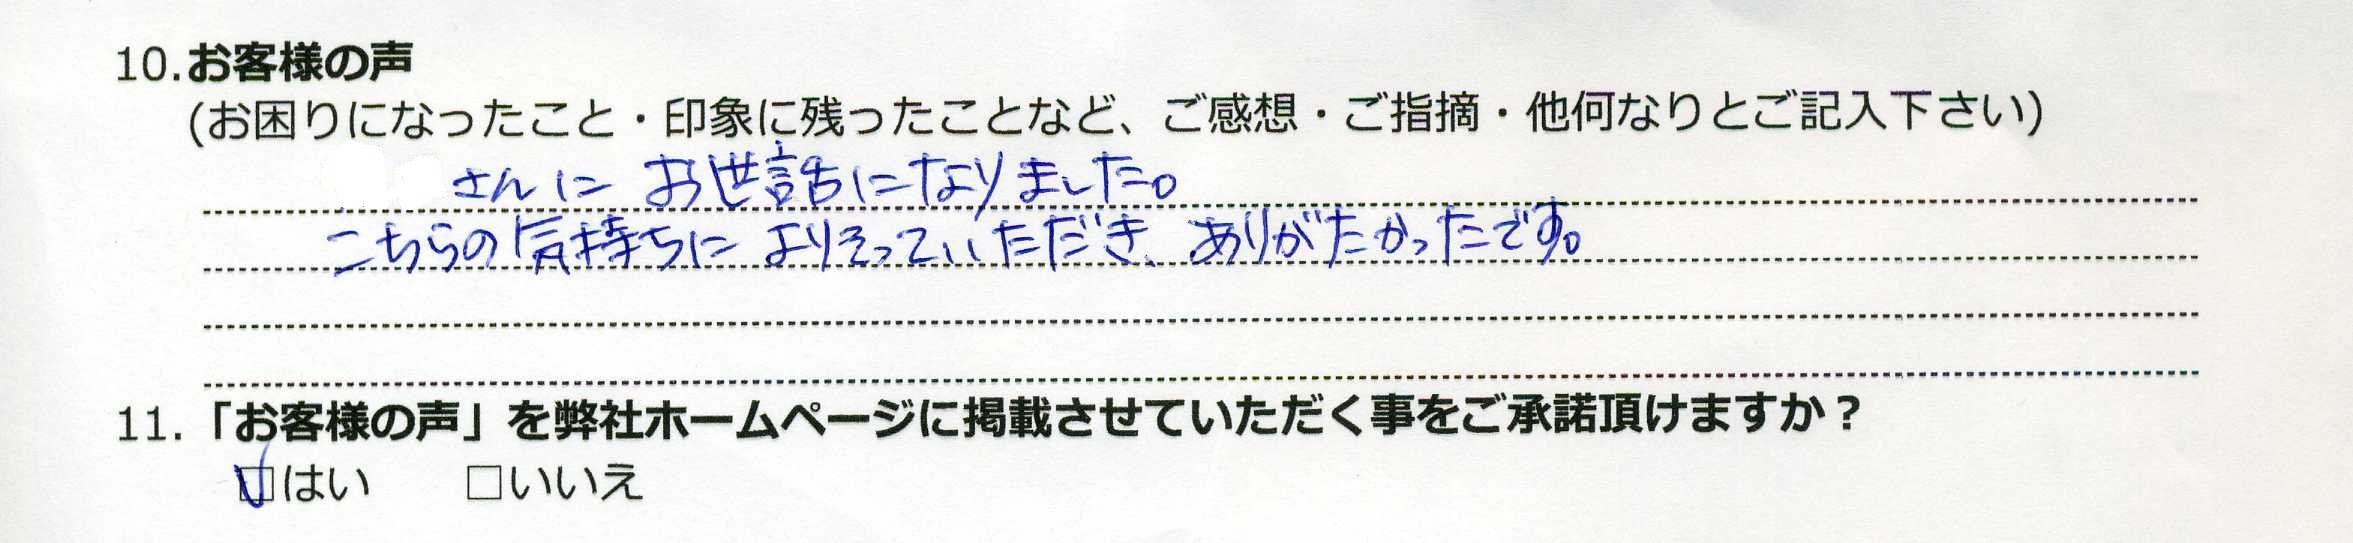 10.お客様の声
(お困りになったこと・印象に残ったことなど、ご感想・ご指摘・他何なりとご記入下さい)
さんに お世話になりました。
こちらの気持ちに よりそっていただき、ありがたかったです。
11.「お客様の声」を弊社ホームページに掲載させていただく事をご承諾頂けますか？
☑はい □いいえ